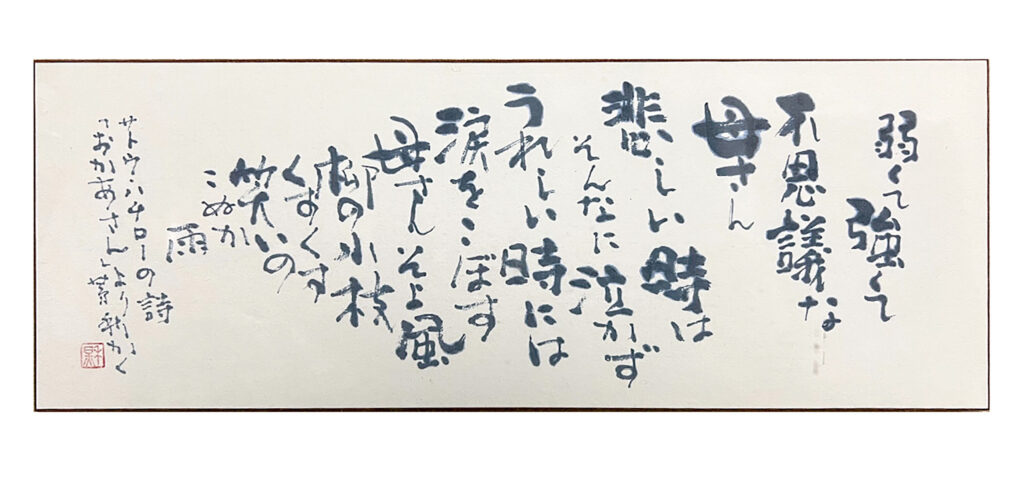 弱くて強くて
不思議な
母さん
悲しい時は
そんなに泣かず
うれしい時には
涙をこぼす
母さんそよ風
柳の小枝
くすくす
笑いの
こぬか
雨
サトウハチローの詩
「おかあさん」より